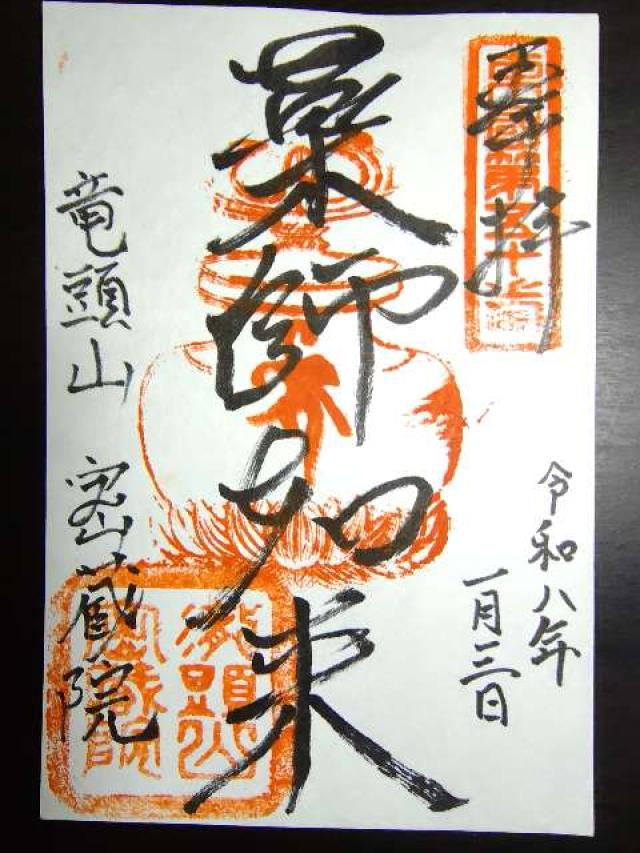 奉拝
令和八年
一月三日
薬師如来
竜頭山 密蔵院